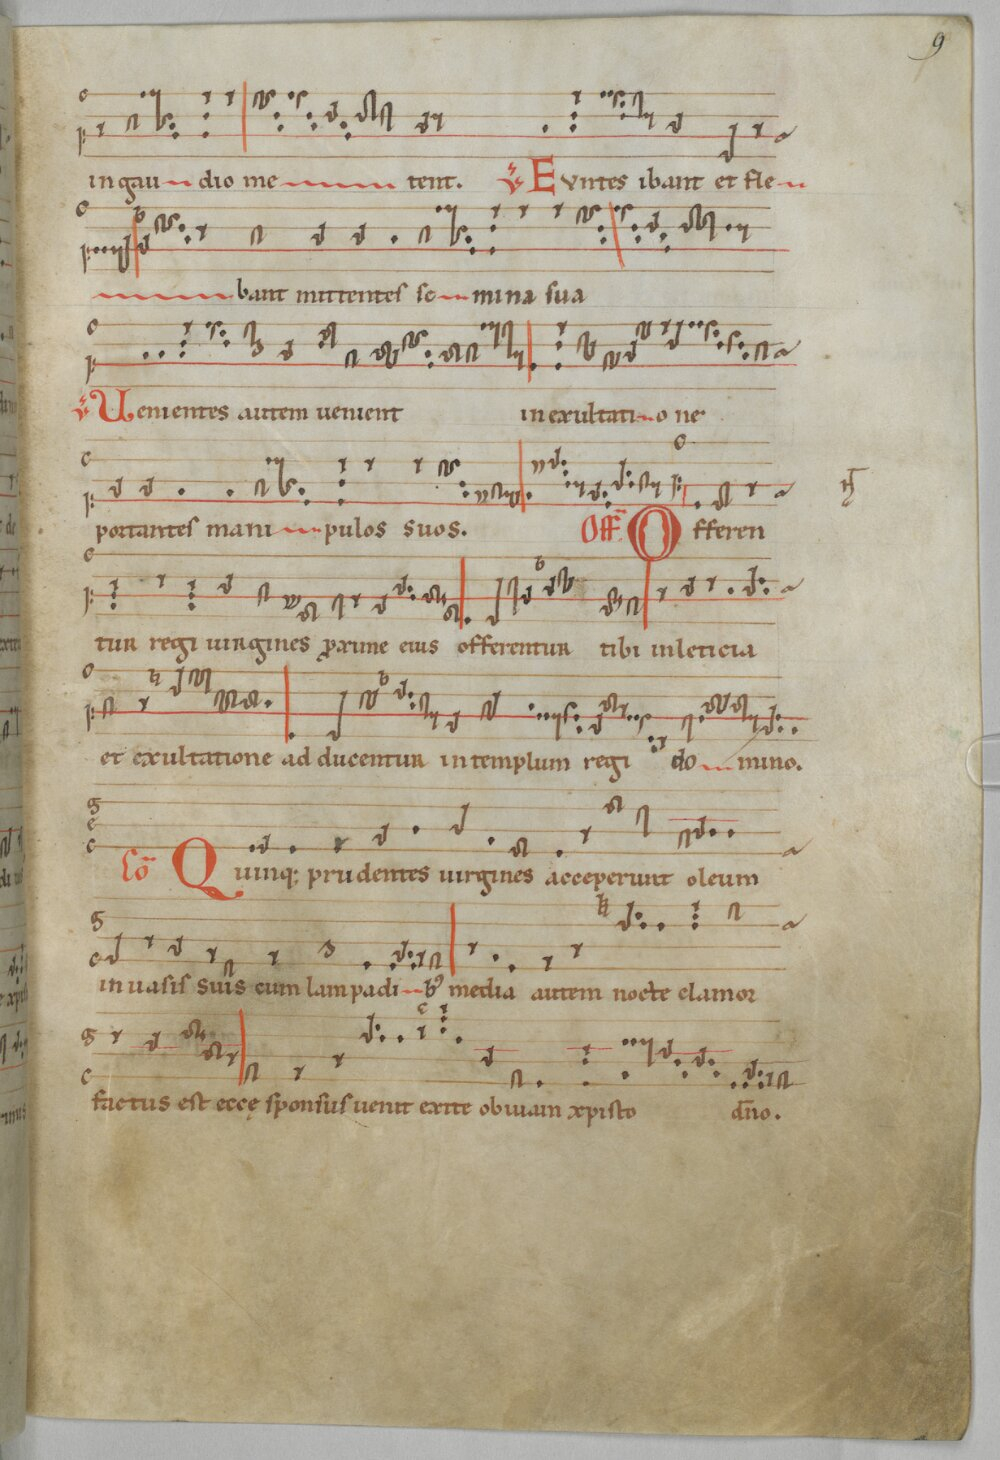 9
in gau dio me tent. V Euntes ibant et fle
bant mittentes se mina sua
V Uenientes autem uenient in exultati o ne
portantes mani pulos suos. Off Offeren
tur regi uirgines proxime eius offerentur tibi in leticia
et exultatione ad ducentur in templum regi do mino.
Co Quinq; prudentes uirgines acceperunt oleum
in uasis suis cum lampadi b9 media autem nocte clamor
factus est eccę sponsus uenit exite obuiam xpisto dño.